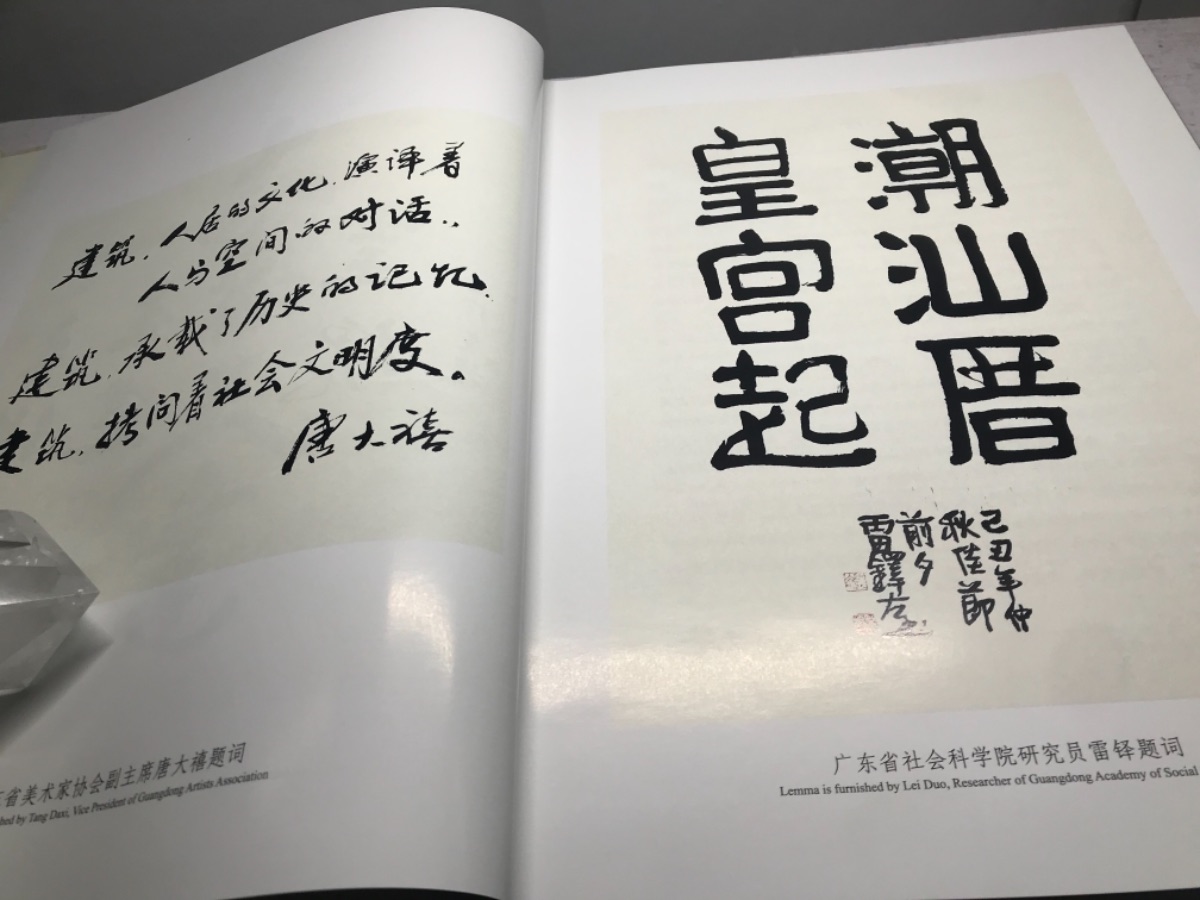 建筑，人居的文化，演译着
人与空间的对话。
建筑，承载了历史的记忆，
建筑，拷问着社会文明度。
唐大禧
省美术家协会副主席唐大禧题词
by Tang Daxi, Vice President of Guangdong Artists Association
潮汕厝
皇宫起
己丑年仲
秋佳節
前夕
雷鐸
广东省社会科学院研究员雷铎题词
Lemma is furnished by Lei Duo, Researcher of Guangdong Academy of Social